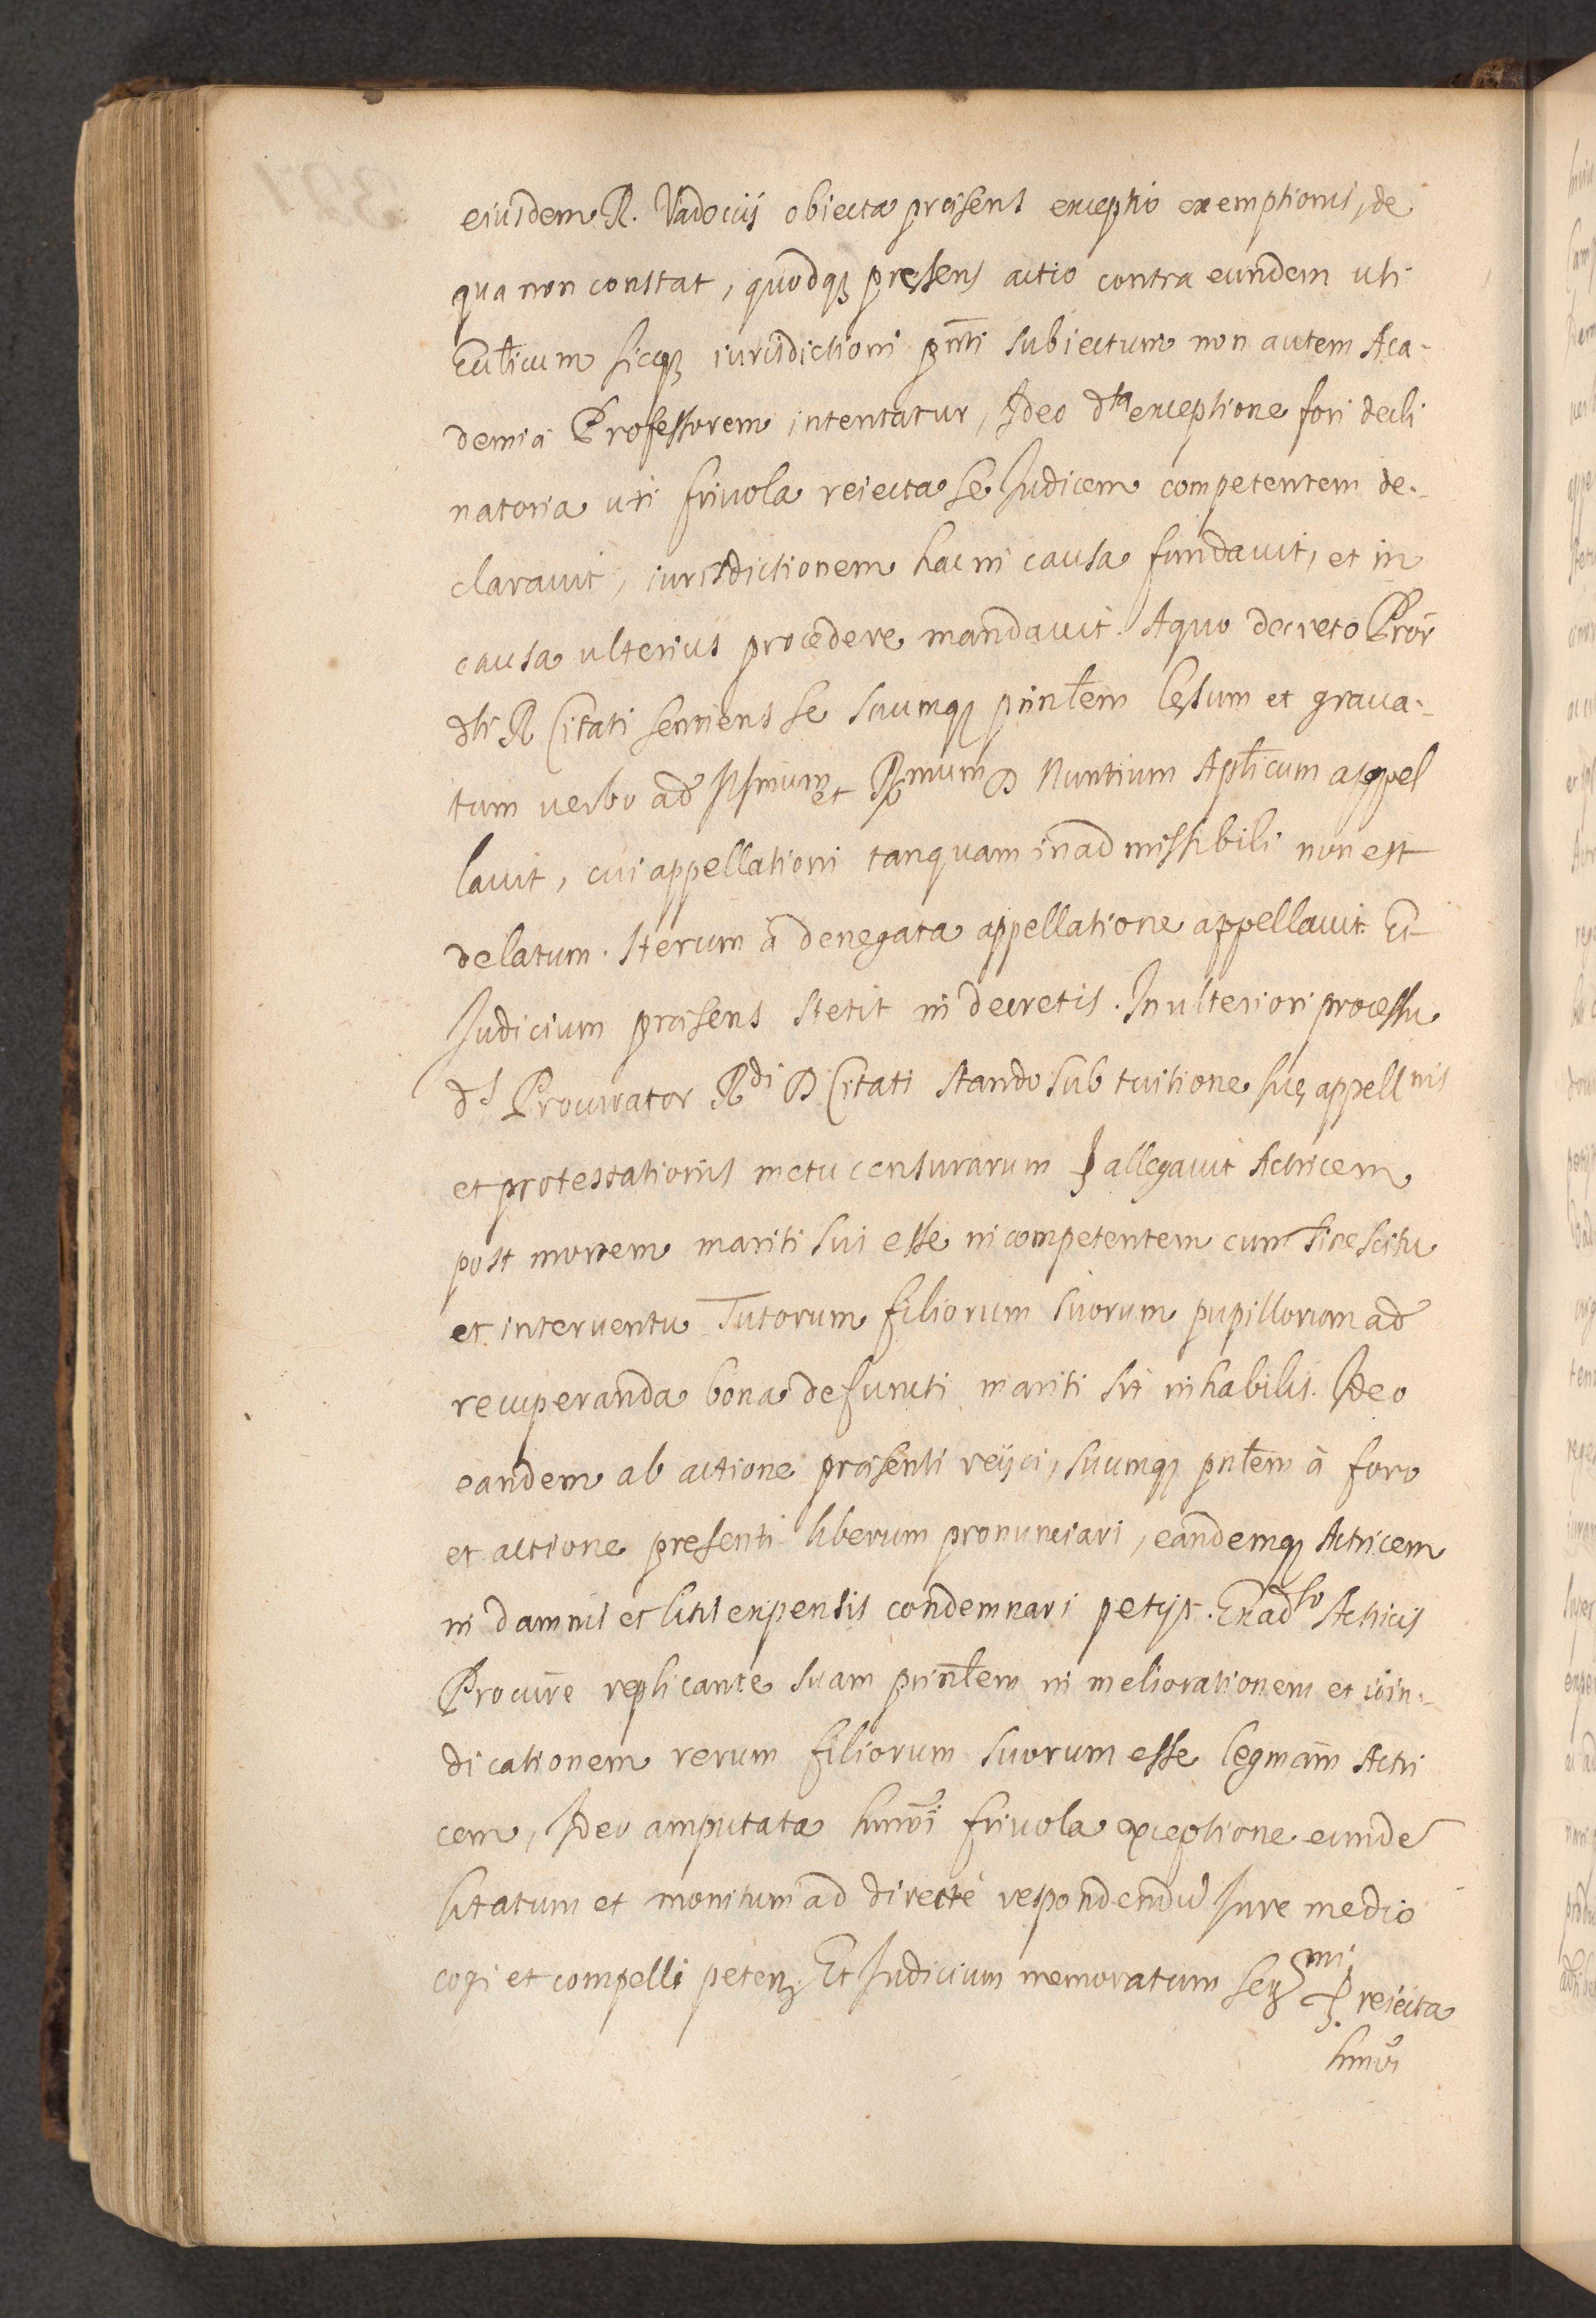 eiusdem R. Vadocÿ obiecta præsens exceptio exemptionis, de
qua non constat, quodqꝫ pręsens actio contra eundem uti
Eccłicum sicqꝫ iurisdictioni pn̄ti subiectum non autem Aca-
demiæ Professorem intentatur, Ideo dta exceptione fori decli
natoria uti friuola reiecta se Judicem competentem de-
clarauit, iurisdictionem hac in causa fundauit, et in
causa ulterius procedere mandauit. A quo decreto Pror̄
dti R Citati sentiens se suumqꝫ prinłem lęsum et graua-
tum verbo ad Illmum et Rmum D Nuntium Apłicum appel
lauit, cui appellationi tanquam inadmissibili non est
delatum. Iterum à denegata appellatione appellauit Et
Judicium præsens stetit in decretis. In ulteriori processu
ds Procurator Rdi D Citati stando sub tuitione suę appellnis
et protestationis metu censurarum allegauit Actricem
post mortem mariti sui esse incompetentem cum sine scitu
et interuentu Tutorum filiorum suorum pupillorum ad
recuperanda bona defuncti mariti sit inhabilis. Ideo
eandem ab actione præsenti reÿci, suumqꝫ pnłem à foro
et actione presenti liberum pronunciari, eandemqꝫ Actricem
in damnis et litis expensis condemnari petÿt. Ex adso Actricis
Procur̄e replicante suam prinłem in meliorationem et uin-
dicationem rerum filiorum suorum esse legmam̄ Actri
cem, Ideo amputata hmōi friuola exceptione eunde͂
citatum et monitum ad directè respondendū Jure medio
cogi et compelli peteñ. Et Judicium memoratum reiecta
hmōi